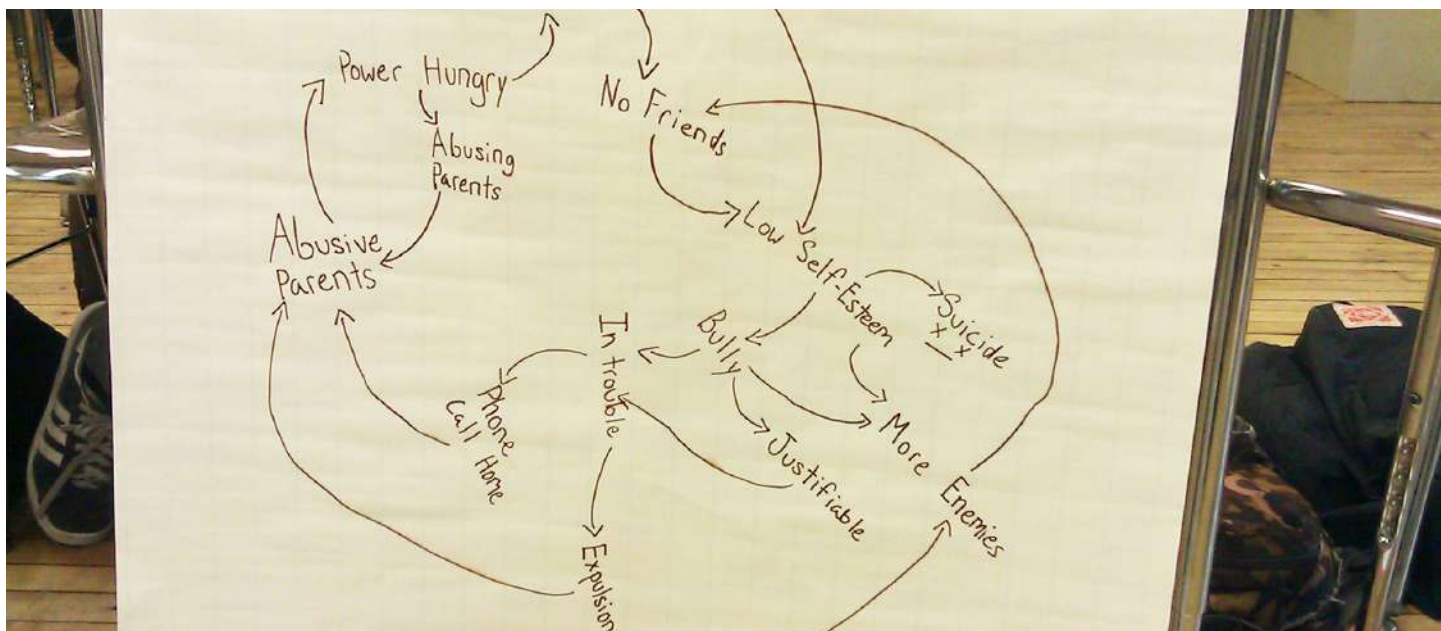 Power Hungry
Abusing
Parents
Abusive
Parents
No Friends
Low Self-Esteem
Suicide
Bully
In trouble
Phone
Call Home
Justifiable
More Enemies
Expulsion